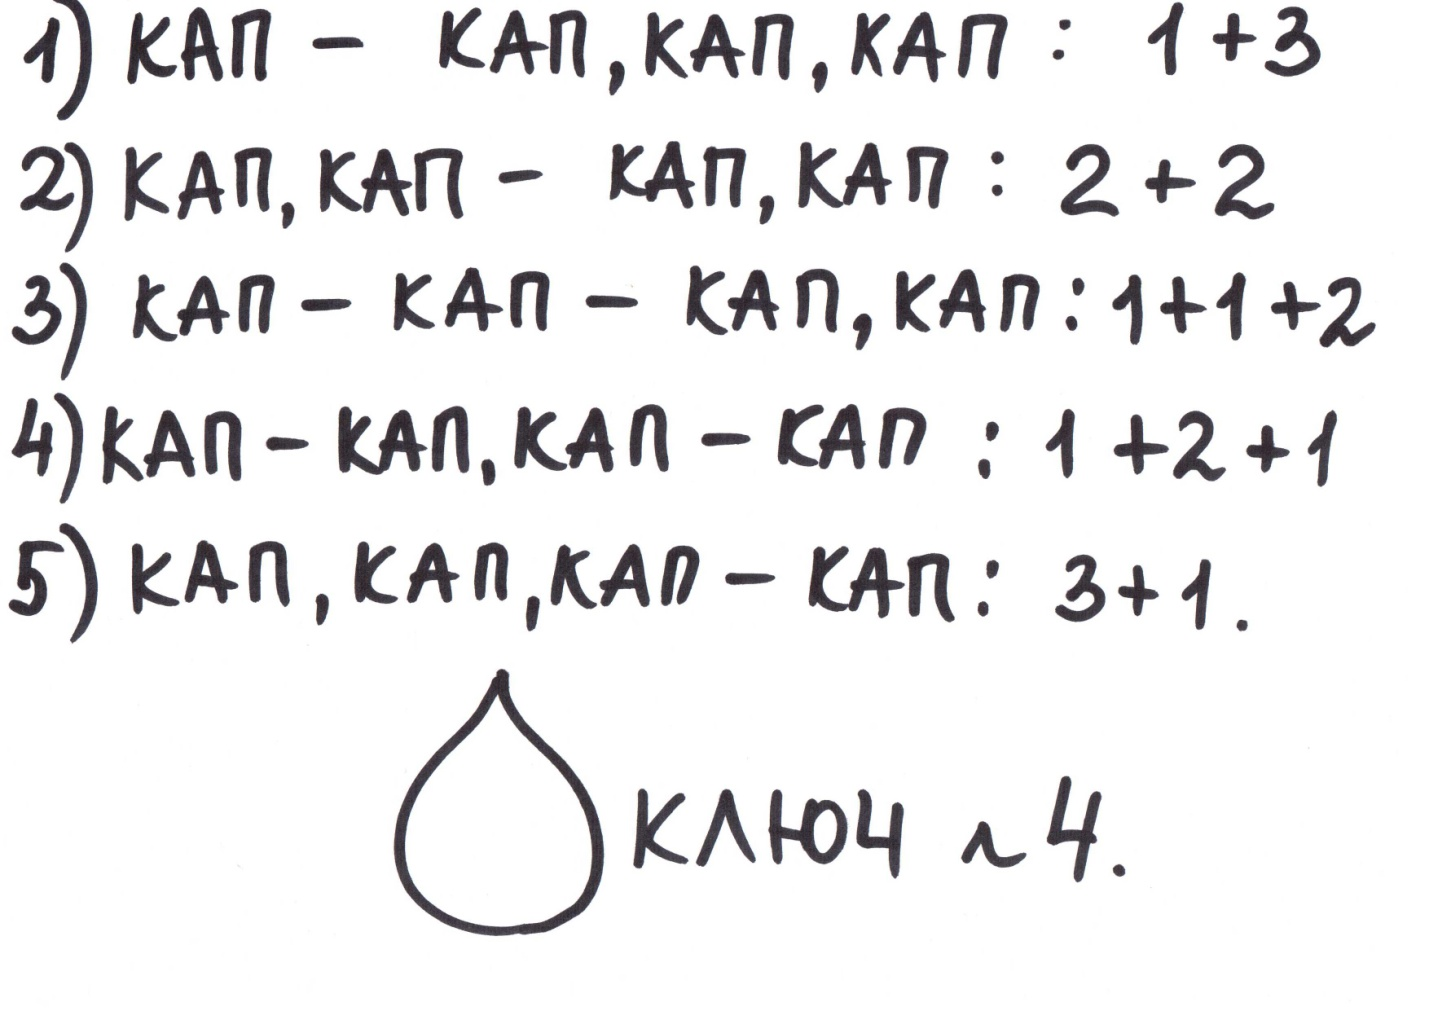 1) КАП – КАП, КАП, КАП : 1+3
2) КАП, КАП – КАП, КАП : 2+2
3) КАП – КАП – КАП, КАП : 1+1+2
4) КАП – КАП, КАП – КАП : 1+2+1
5) КАП, КАП, КАП – КАП : 3+1.
КЛЮЧ ~ 4.